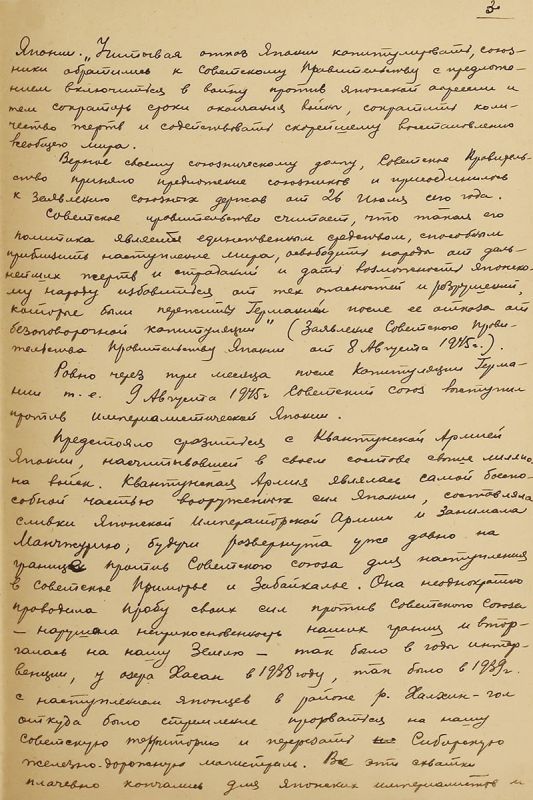 3
Японии. „Учитывая отказ Японии капитулировать, союз-
ники обратились к Советскому Правительству с предложе-
нием включиться в войну против Японской агрессии и
тем сократить сроки окончания войны, сократить коли-
чество жертв и содействовать скорейшему восстановлению
всеобщего мира.
Верное своему союзническому долгу, Советское Правитель-
ство приняло предложение союзников и присоединилось
к заявлению союзных держав от 26 Июля сего года.
Советское правительство считает, что такая его
политика является единственным средством, способным
приблизить наступление мира, освободить народы от даль-
нейших жертв и страданий и дать возможность Японско-
му народу избавиться от тех опасностей и разрушений,
которые были пережиты Германией после её отказа от
безоговорочной капитуляции" (Заявление Советского Прави-
тельства Правительству Японии от 8 Августа 1945г.).
Ровно через три месяца после капитуляции Герма-
нии т.е. 9 Августа 1945г Советский Союз выступил
против империалистической Японии.
Предстояло сразиться с Квантунской Армией
Японии, насчитывавшей в своем составе свыше миллио-
на войск. Квантунская Армия являлась самой боеспо-
собной частью вооруженных сил Японии, составляла
сливки Японской Императорской Армии и занимала
Манчжурию, будучи развернута уже давно на
границе против Советского Союза для наступления
в Советское Приморье и Забайкалье. Она неоднократно
проводила пробу своих сил против Советского Союза
– нарушала неприкосновенность наших границ и втор-
галась на нашу Землю – так было в годы интер-
венции, у озера Хасан в 1938 году, так было в 1939г.
с наступлением японцев в районе р. Халхин-гол
откуда было стремление прорваться на нашу
Советскую территорию и перерезать Сибирскую
железно-дорожную магистраль. Все эти схватки
плачевно кончались для японских империалистов и